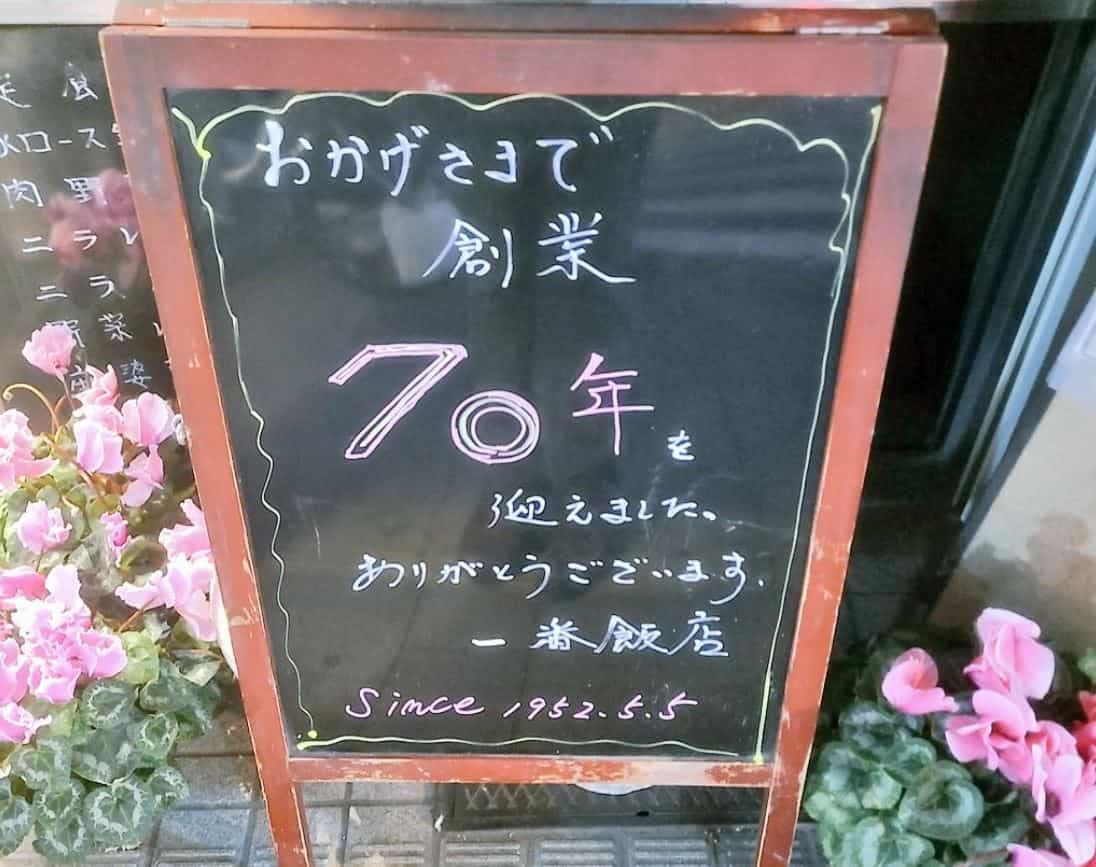 おかげさまで
創業
70年を
迎えました。
ありがとうございます.
一番飯店
Since 1952.5.5
定食
ロース
肉野
ニラレ
ニラ
野菜